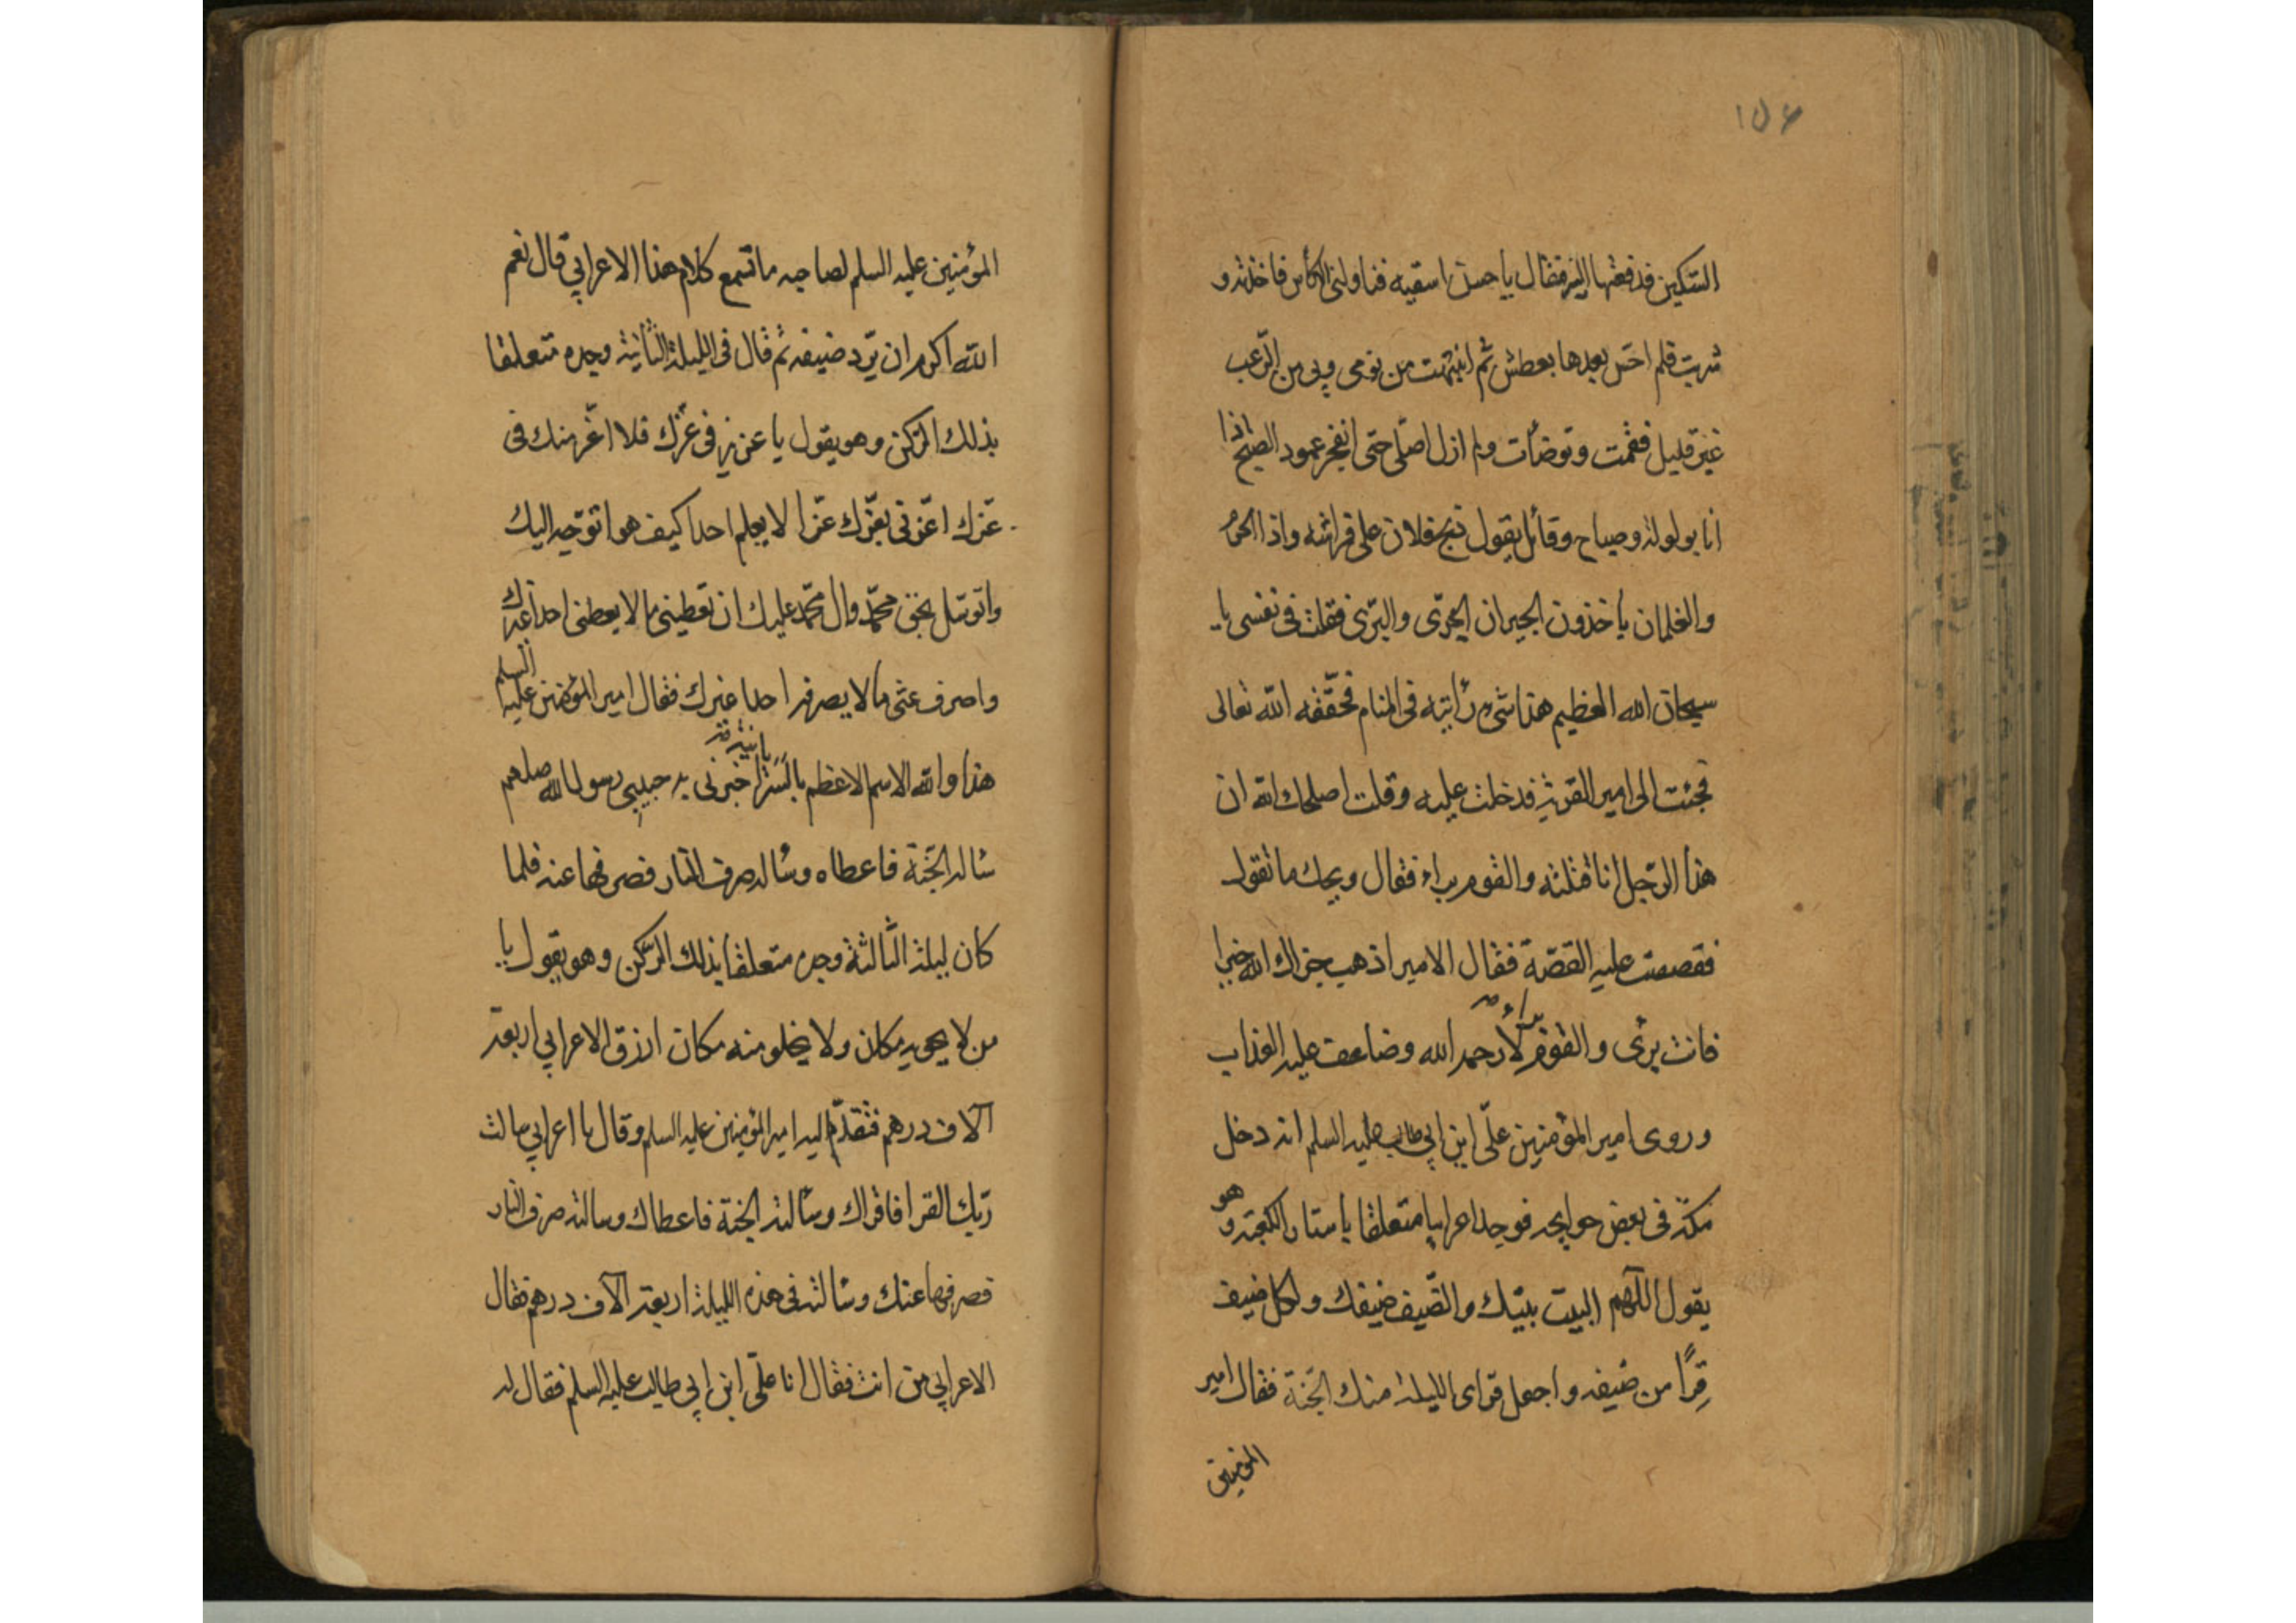 ١٥٤
السكين فدفعتها اليه فقال يا حسن اسقيه فناولنى الكأس فاخذته و
شربت فلم احس بعدها بعطش ثم انتبهت من نومى وبى من الرّعب
غير قليل فقمت وتوضأت ولم ازل اصلى حتى انفجر عمود الصبح اذا
انا بولولة وصياح وقائل يقول ذبح فلان على فراشه واذا الحرس
والغلمان يأخذون الجيران الجرى والبرى فقلت فى نفسى يا
سبحان الله العظيم هذا شىء رأيته فى المنام فحققه الله تعالى
فجئت الى امير القرية فدخلت عليه وقلت اصلحك الله ان
هذا الرّجل انا قتلته والقوم براء فقال ويحك ما تقول
فقصصت عليه القصّة فقال الامير اذهب جزاك الله خيرا
فانت برئى والقوم براء لا رحمه الله وضاعف عليه العذاب
وروى امير المؤمنين علىّ ابن ابى طالب عليه السلم انه دخل
مكّة فى بعض حوايجه فوجد اعرابيا متعلقا باستار الكعبة وهو
يقول اللّهم البيت بيتك والضّيف ضيفك ولكل ضيف
قِرًا من ضيفه واجعل قراى الليلة منك الجنّة فقال امير
المؤمنين
المؤمنين عليه السلم لصاحبه ما تسمع كلام هذا الاعرابى قال نعم
الله اكرم ان يردّ ضيفه ثم قال فى الليلة الثانية وجده متعلقا
بذلك الركن وهو يقول يا عزيز فى عزّك فلا اعز منك فى
عزك اعزنى بعزّك عزا لا يعلم احدا كيف هو اتوجّه اليك
واتوسّل بحق محمّد وال محمّد عليك ان تعطينى ما لا يعطنى احدا غيرك
واصرف عنّى ما لا يصرفه احدا غيرك فقال امير المؤمنين عليه السلم
هذا والله الاسم الاعظم بالسريانية اخبرنى به حبيبى رسول الله صلعم
سأله الجنّة فاعطاه وسأله صرف النار فصرفها عنه فلما
كان ليلة الثالثة وجده متعلقا بذلك الرّكن وهو يقول يا
من لا يحويه مكان ولا يخلو منه مكان ارزق الاعرابى اربعة
آلاف درهم فتقدّم اليه امير المؤمنين عليه السلم وقال يا اعرابى سالت
ربّك القرا فاقراك وسألته الجنة فاعطاك وسالته صرف النار
فصرفها عنك وسألته فى هذه الليلة اربعة آلاف درهم فقال
الاعرابى من انت فقال انا علىّ ابن ابى طالب عليه السلم فقال له